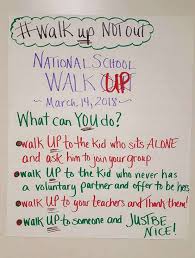 #-Walk up NOT out
NATIONAL SCHOOL
WALK UP
~ March 14, 2018 ~
What can YOU do?
• walk UP to the kid who sits ALONE
and ask him to join your group
• Walk UP to the kid who never has
a voluntary partner and offer to be hers
• walk UP to your teachers and Thank them!
• walk UP to someone and JUST BE
NICE!